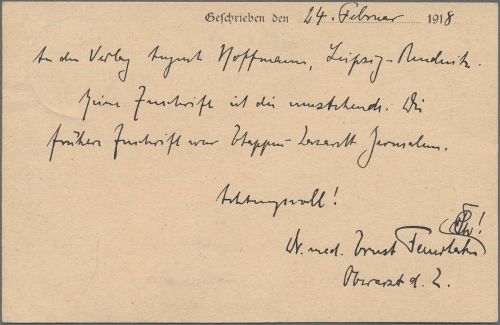 Geschrieben den 24. Februar 1918
An den Verlag August Hoffmann, Leipzig-Reudnitz.
Meine Anschrift ist die umstehende. Die
frühere Anschrift war Etappen-Lazarett Jerusalem.
Achtungsvoll!
Dr. med. Ernst
Oberarzt d. L.